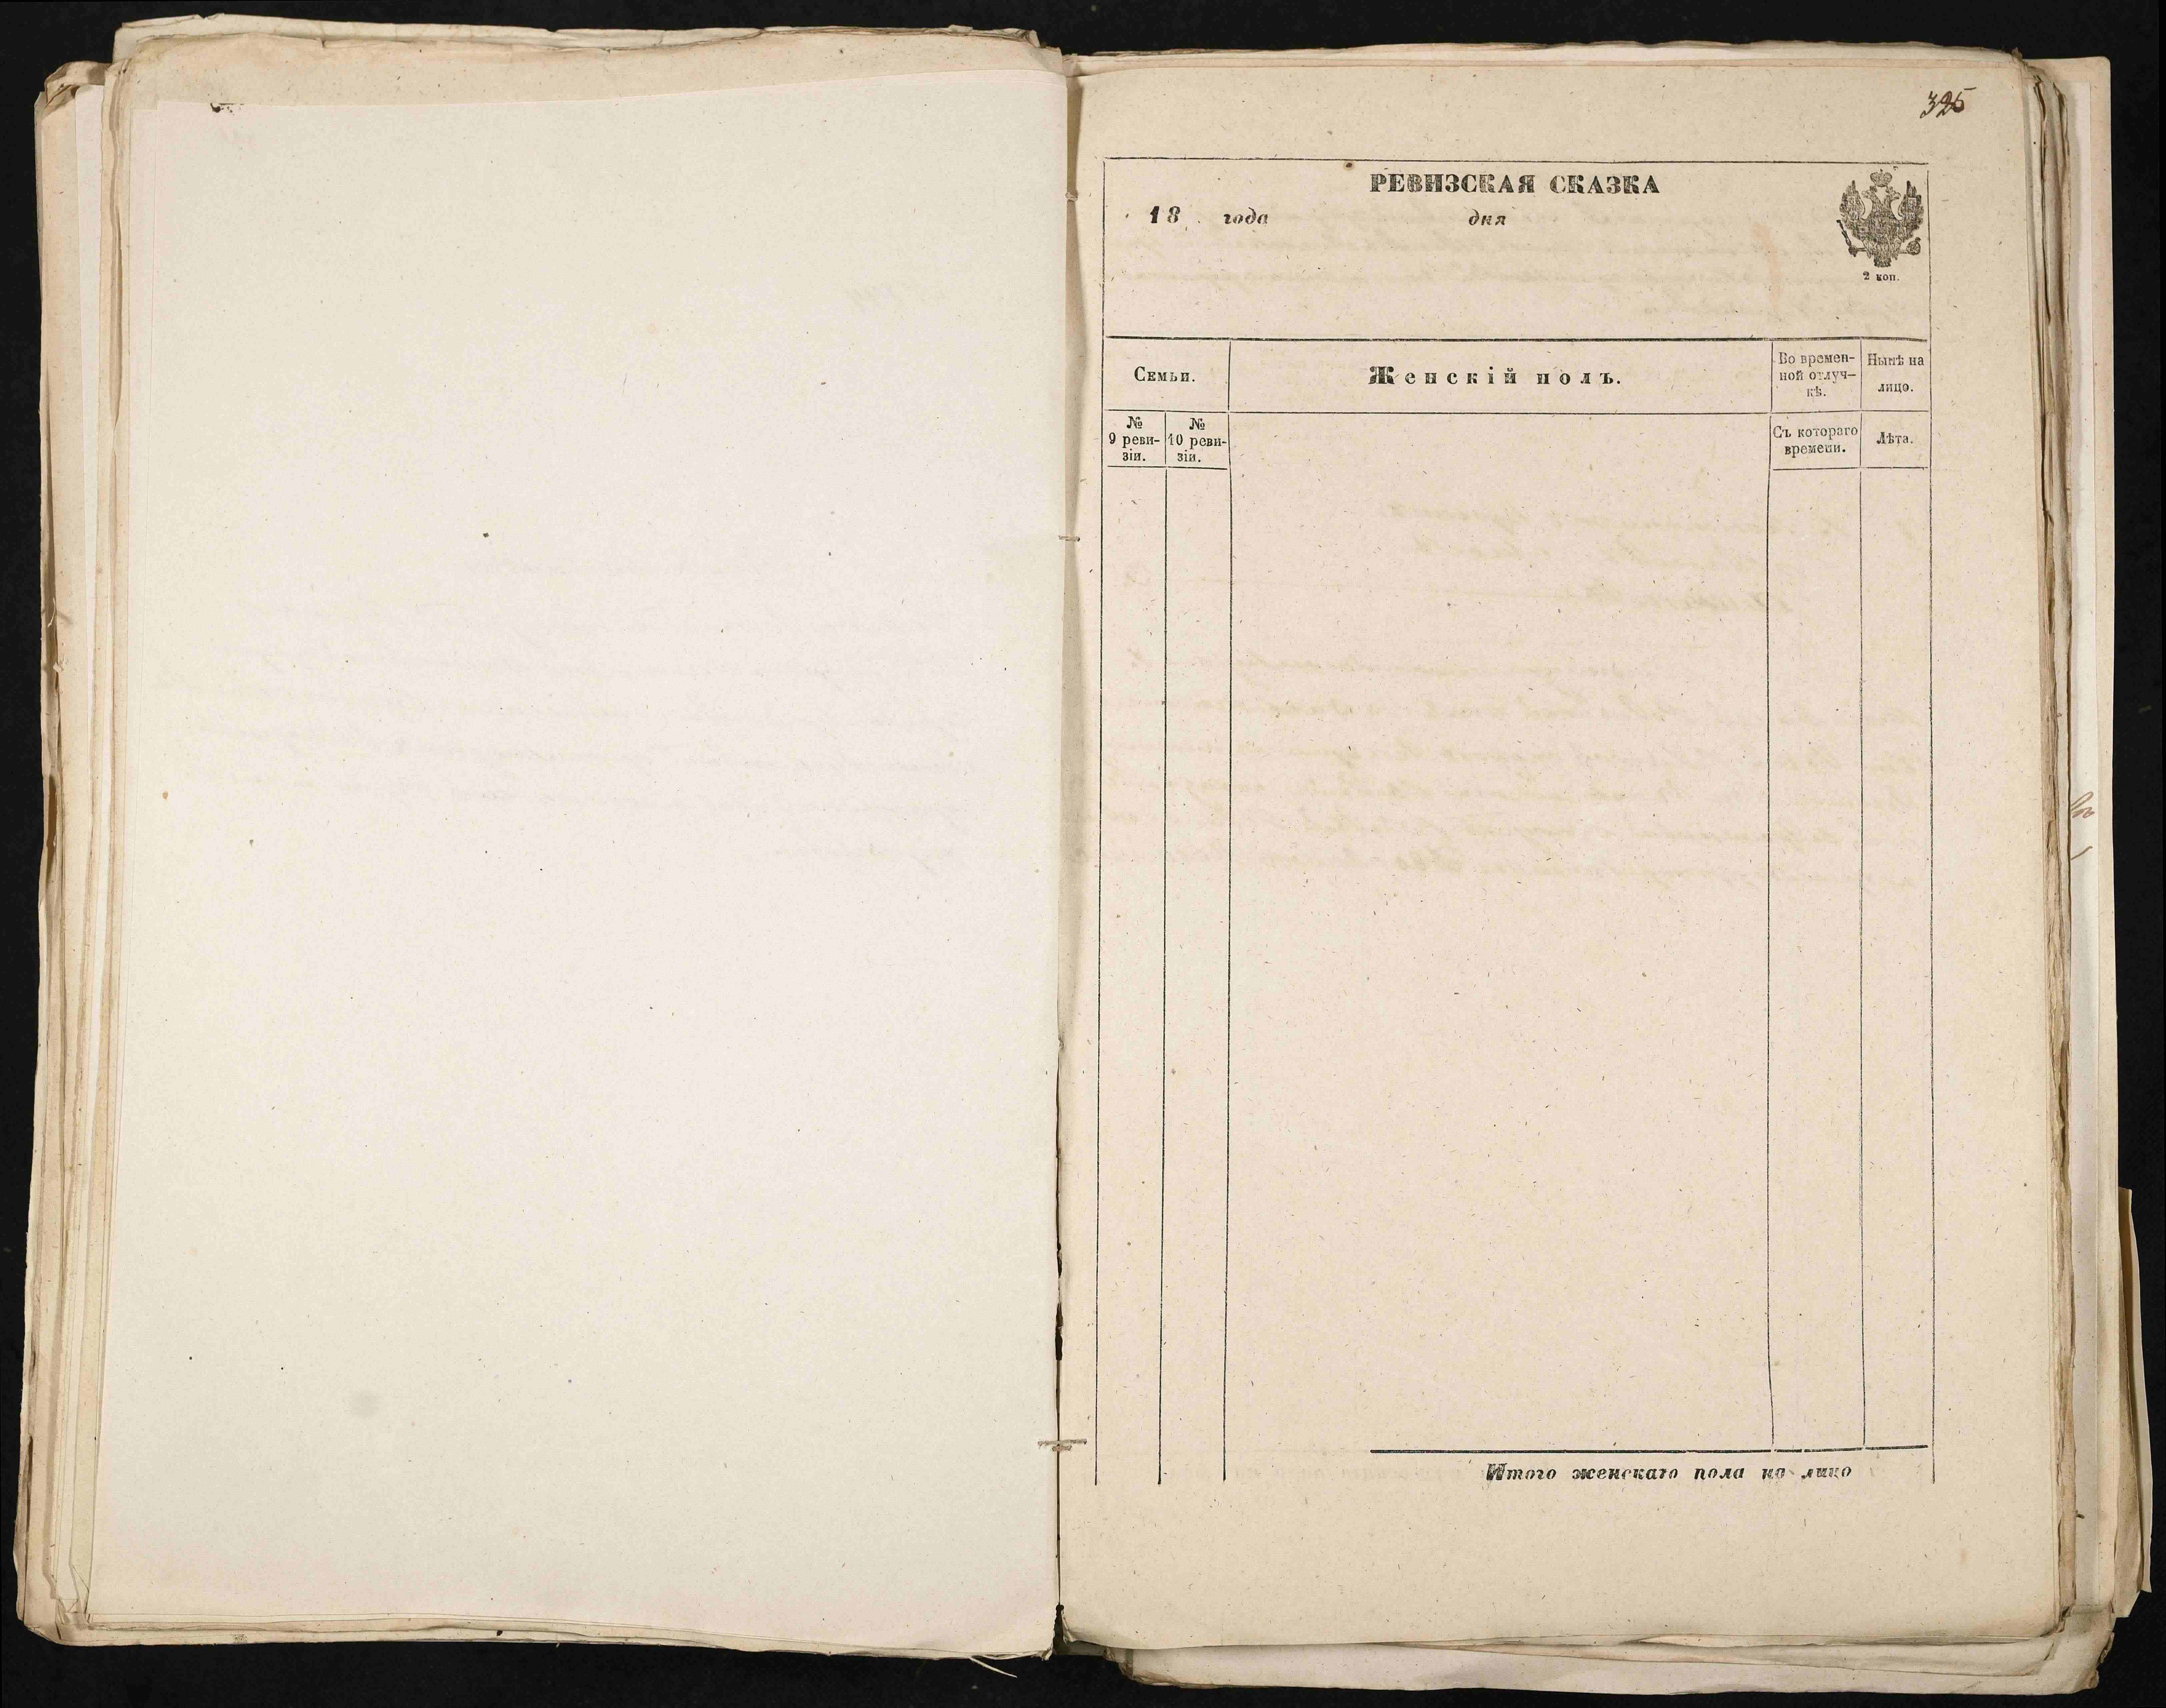 325
РЕВИЗСКАЯ СКАЗКА
18 года дня
2 коп.
Семьи.
Женскій полъ.
Во времен-
ной отлуч-
кѣ.
Нынѣ на
лицо.
№
9 реви-
зіи.
№
10 реви-
зіи.
Съ котораго
времени.
Лѣта.
Итого женскаго пола на лицо